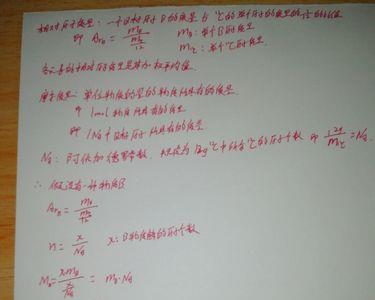 相对原子质量：一个B的原子B的质量与¹²C的原子的质量的1/12的比值
即 Ar_B = m_B / (m_C/12)  m_B：单个B的质量
m_C：单个¹²C的质量
各元素的相对原子质量是其加权平均值
摩尔质量：单位物质的量的物质所具有的质量
1mol物质所具有的质量
即 1 N_A个B原子所具有的质量
N_A：阿伏加德罗常数，规定为12g ¹²C中所含¹²C的原子个数 即 12g / m_C = N_A
∴ 假设有一种物质B
Ar_B = m_B / (m_C/12)
n = x / N_A  x：B物质的原子个数
M_B = x m_B / (x/N_A) = m_B · N_A